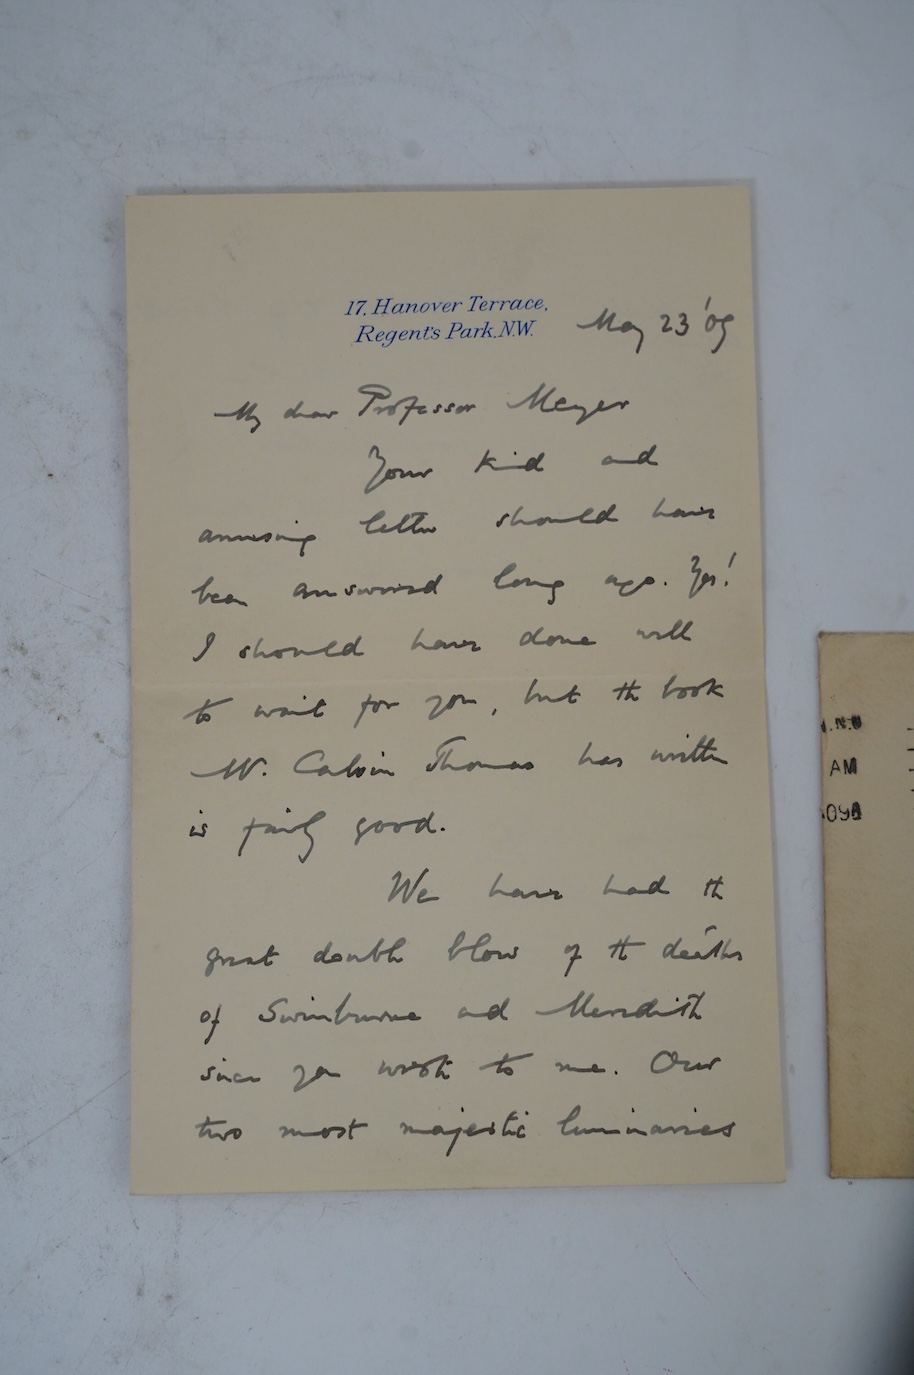 17, Hanover Terrace,
Regent's Park, N.W.
May 23 '09
My dear Professor Meyer
Your kind and
amusing letter should have
been answered long ago. Yes!
I should have done well
to wait for you, but th book
Mr. Calvin Thomas has written
is fairly good.
We have had th
great double blow of th deaths
of Swinburne and Meredith
since you wrote to me. Our
two most majestic luminaries
.N.W
AM
09